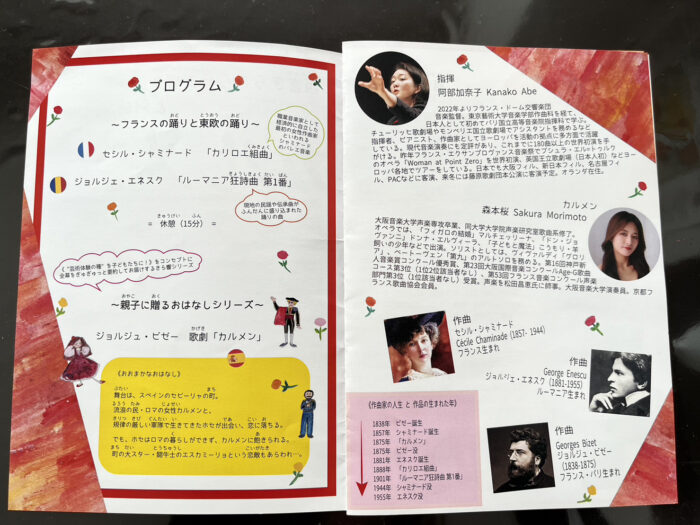 プログラム
～フランスの踊りと東欧の踊り～
おど
とうおう
おど
職業音楽家として
経済的に自立した
最初の女性作曲家
といわれる
シャミナード
のバレエ音楽
セシル・シャミナード 「カリロエ組曲」
くみきょく
ジョルジェ・エネスク 「ルーマニア狂詩曲 第1番」
きょうしきょく だい ばん
現地の民謡や伝承曲が
ふんだんに盛り込まれた
踊りの曲
= 休憩（15分）=
きゅうけい
ふん
《"芸術体験の種"を子どもたちに！》をコンセプトに
全幕をぎゅぎゅっと要約してお届けするきら響シリーズ
～親子に贈るおはなしシリーズ～
おやこ
おく
ジョルジュ・ビゼー 歌劇「カルメン」
かげき
《おおまかなおはなし》
舞台は、スペインのセビーリャの町。
ぶたい
まち
流浪の民・ロマの女性カルメンと、
るろう たみ
じょせい
規律の厳しい軍隊で生きてきたホセが出会い、恋に落ちる。
きりつ きび ぐんたい い
であ
こい お
でも、ホセはロマの暮らしができず、カルメンに飽きられる。
く
あ
町の大スター・闘牛士のエスカミーリョという恋敵もあらわれ…。
まち だい
とうぎゅうし
こいがたき
指揮
阿部加奈子 Kanako Abe
2022年よりフランス・ドーム交響楽団
音楽監督。東京藝術大学音楽学部作曲科を経て、
日本人として初めてパリ国立高等音楽院指揮科で学ぶ。
チューリッヒ歌劇場やモンペリエ国立歌劇場でアシスタントを務めるなど
指揮者、ピアニスト、作曲家としてヨーロッパを活動の拠点に多方面で活躍
している。現代音楽演奏にも定評があり、これまでに180曲以上の世界初演を手
がける。昨年フランス・エクサンプロヴァンス音楽祭でブシュラ・エル＝トゥルク
のオペラ「Woman at Point Zero」を世界初演、英国王立歌劇場（日本人初）などヨー
ロッパ各地でツアーをしている。日本でも大阪フィル、新日本フィル、名古屋フィ
ル、PACなどに客演、来冬には藤原歌劇団本公演に客演予定。オランダ在住。
カルメン
森本桜 Sakura Morimoto
大阪音楽大学声楽専攻卒業、同大学大学院声楽研究室歌曲系修了。
オペラでは、「フィガロの結婚」マルチェッリーナ、「ドン・ジョ
ヴァンニ」ドンナ・エルヴィーラ、「子どもと魔法」こうもり・羊
飼いの少年などで出演。ソリストとしては、ヴィヴァルディ「グロリ
ア」、ベートーヴェン「第九」のアルトソロを務める。第16回神戸新
人音楽賞コンクール優秀賞、第23回大阪国際音楽コンクールAge-G歌曲
コース第3位（1位2位該当者なし）、第53回フランス音楽コンクール声楽
部門第3位（1位2位該当者なし）受賞。声楽を松田昌恵氏に師事。大阪音楽大学演奏員。京都フ
ランス歌曲協会会員。
作曲
セシル・シャミナード
Cécile Chaminade (1857- 1944)
フランス生まれ
作曲
George Enescu
ジョルジェ・エネスク (1881-1955)
ルーマニア生まれ
作曲
Georges Bizet
ジョルジュ・ビゼー
(1838-1875)
フランス・パリ生まれ
《作曲家の人生 と 作品の生まれた年》
1838年 ビゼー誕生
1857年 シャミナード誕生
1875年 「カルメン」
1875年 ビゼー没
1881年 エネスク誕生
1888年 「カリロエ組曲」
1901年 「ルーマニア狂詩曲 第1番」
1944年 シャミナード没
1955年 エネスク没